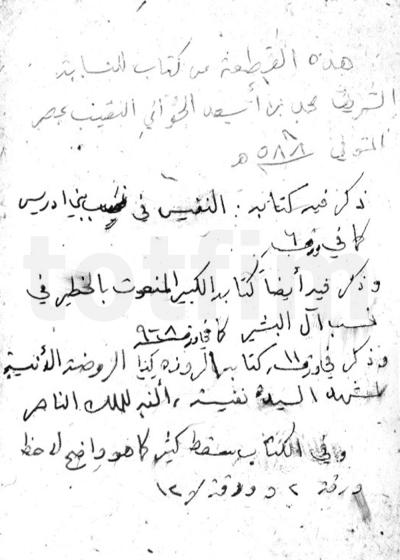 هذه القطعة من كتاب للنسابة
الشريف محمد بن أسعد الجواني النقيب بمصر
المتوفى ٥٨٨ هـ
ذكر فيه كتابه : النفيس في نسب بني ادريس
كما في ورقة ٦
وذكر فيه أيضاً كتابه الكبير المنعوت بالخطير في
نسب آل البشير كما في ورقة ٨-٩
وذكر في ورقة ١١، كتابه الروضة الأنيسة
لمشهد السيدة نفيسة، ألفه للملك الناصر
وفي الكتاب سقط كثير كما هو واضح لاحظ
ورقة ٢ و ورقة ١٢
totfim